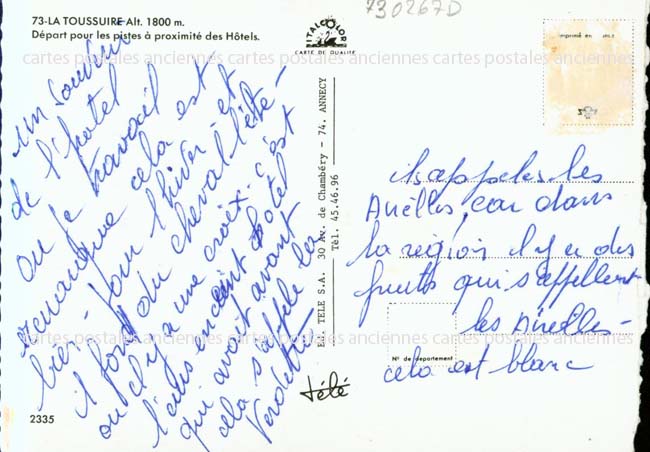 730267D
73-LA TOUSSUIRE Alt. 1800 m.
Départ pour les pistes à proximité des Hôtels.
ITALCOLOR
CARTE DE QUALITÉ
imprimé en
cartes postales anciennes cartes postales anciennes cartes postales anciennes cartes postales anciennes
un souvenir
de l'hotel
ou je travail
remarque cela est
bien - pour l'hiver - et
il font du cheval l'été -
ou il y a une croix. c'est
l'ancient hotel
qui avait avant
cela s'appelle les
Verdettes
Edit. TÉLÉ S.A. 30 Av. de Chambéry - 74. ANNECY
Tél. 45.46.96
télé
ils appeler les
Airelles, car dans
la région il y a des
fruits qui s'appellent
les Airelles -
cela est blanc
N° de département
cartes postales anciennes cartes postales anciennes cartes postales anciennes cartes postales anciennes
2335